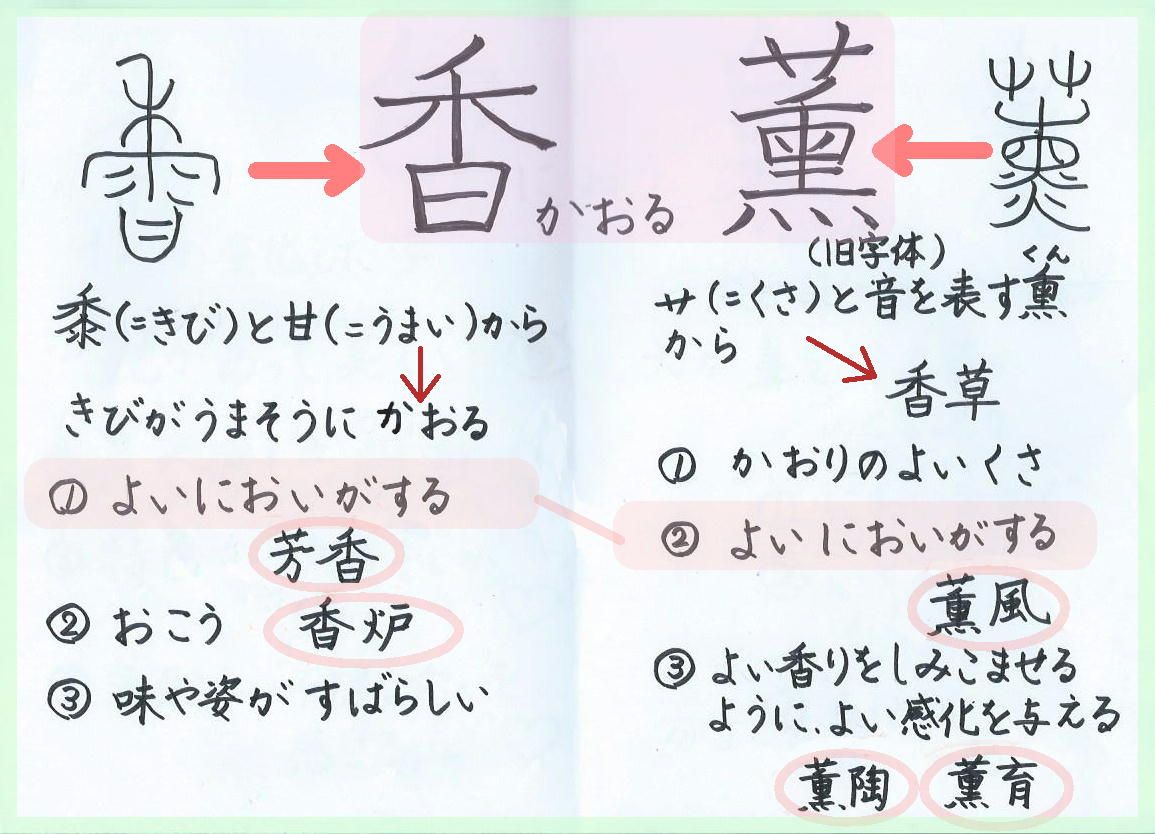 香 薫
かおる
黍(=きび)と甘(=うまい)から
きびがうまそうに かおる
① よいにおいがする
芳香
② おこう 香炉
③ 味や姿がすばらしい
(旧字体)
くん
サ(=くさ)と音を表す熏
から
香草
① かおりのよいくさ
② よいにおいがする
薫風
③ よい香りをしみこませる
ように、よい感化を与える
薫陶 薫育